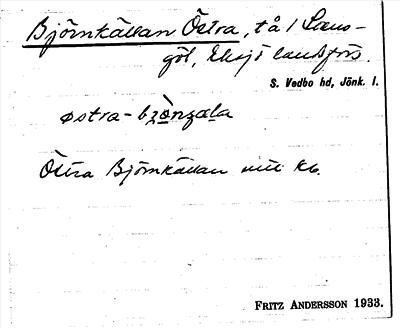 Björnkällan Östra, tå / Lans-
göl, Eksjö landsförs.
S. Vedbo hd, Jönk. l.
østra-
Östra Björnkällan till kb.
FRITZ ANDERSSON 1933.